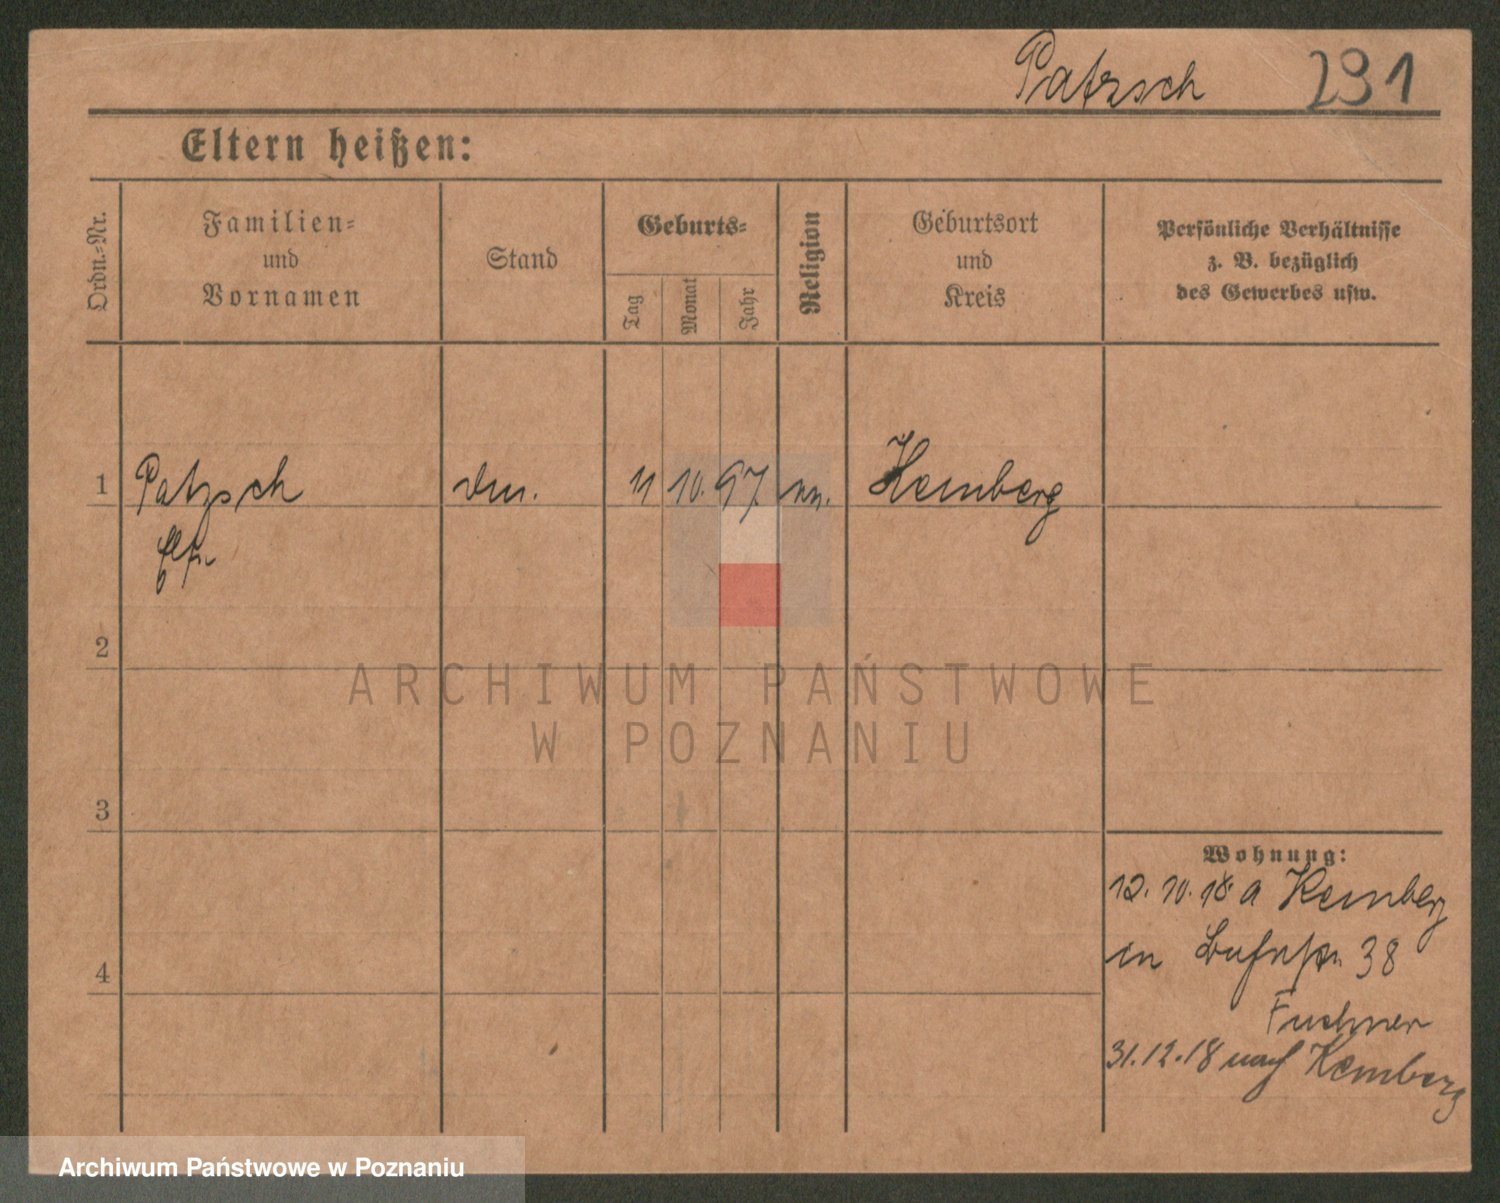 Patzsch 291
Eltern heißen:
Ordn.-Nr.
Familien-
und
Vornamen
Stand
Geburts-
Tag
Monat
Jahr
Religion
Geburtsort
und
Kreis
Persönliche Verhältnisse
z. B. bezüglich
des Gewerbes usw.
1 Patzsch 11 10. 97. Kemberg
2
3
4
ARCHIWUM PAŃSTWOWE
W POZNANIU
Wohnung:
12. 10. 18 a Kemberg
in 38
31.12.18 nach Kemberg
Archiwum Państwowe w Poznaniu